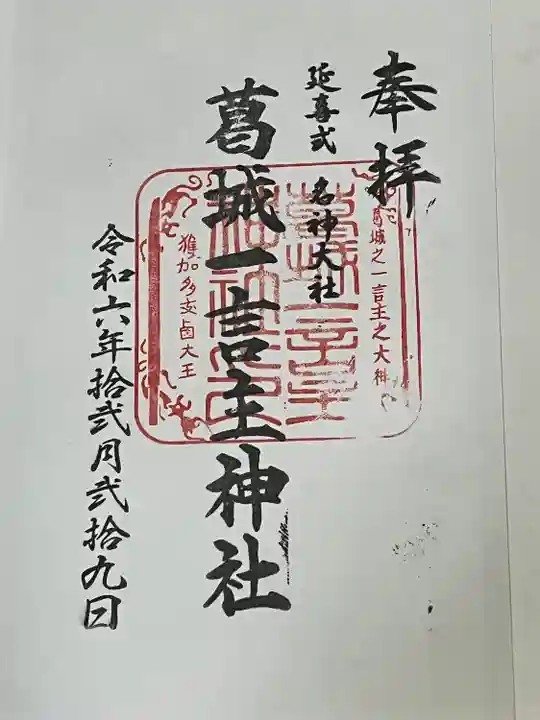 奉拝
延喜式 名神大社
葛城一言主神社
令和六年拾弐月弐拾九日
葛城之一言主之大神
葛城一言主
神社之印
獲加多支鹵大王